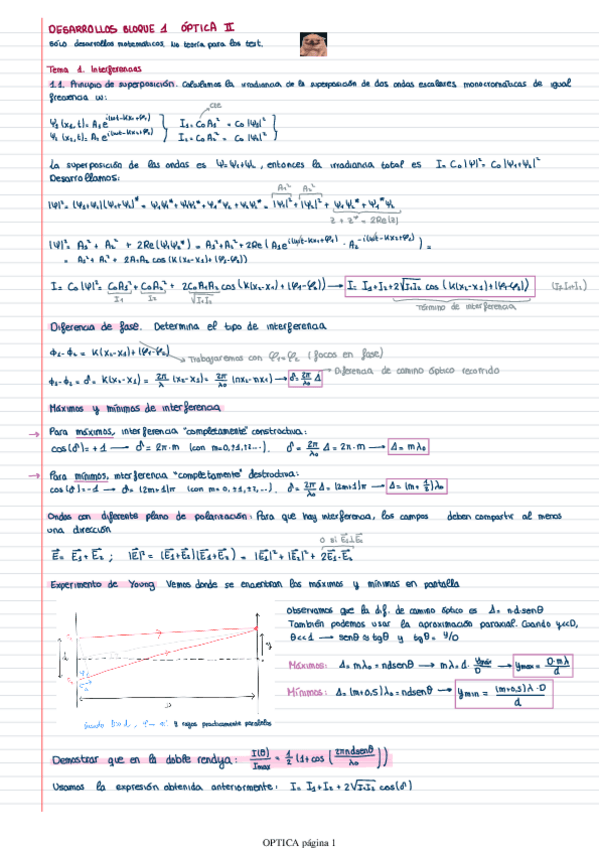 DESARROLLOS BLOQUE 1 ÓPTICA II
Sólo desarrollos matemáticos. No teoría para los test.
Tema 1. Interferencias
1.1. Principio de superposición. Calculamos la irradiancia de la superposición de dos ondas escalares monocromáticas de igual
frecuencia ω:
cte
Ψ₁(x₁,t) = A₁e^i(ωt-kx₁+φ₁) } I₁ = C₀A₁² = C₀|Ψ₁|²
I₂ = C₀A₂² = C₀|Ψ₂|²
La superposición de las ondas es Ψ = Ψ₁+Ψ₂, entonces la irradiancia total es I = C₀|Ψ|² = C₀|Ψ₁+Ψ₂|²
Desarrollamos:
A₁² A₂²
|Ψ|² = (Ψ₁+Ψ₂)(Ψ₁+Ψ₂)* = Ψ₁Ψ₁* + Ψ₁Ψ₂* + Ψ₁*Ψ₂ + Ψ₂Ψ₂* = |Ψ₁|² + |Ψ₂|² + Ψ₁Ψ₂* + Ψ₁*Ψ₂
z + z* = 2Re(z)
|Ψ|² = A₁² + A₂² + 2Re(Ψ₁Ψ₂*) = A₁² + A₂² + 2Re(A₁e^i(ωt-kx₁+φ₁) · A₂^-i(ωt-kx₂+φ₂)) =
= A₁² + A₂² + 2A₁A₂ cos(k(x₂-x₁)+(φ₁-φ₂))
I = C₀|Ψ|² = C₀A₁² + C₀A₂² + 2C₀A₁A₂ cos(k(x₂-x₁)+(φ₁-φ₂)) → I = I₁+I₂+2√I₁I₂ cos(k(x₂-x₁)+(φ₁-φ₂))
I₁ I₂ √I₁I₂ Término de interferencia
Diferencia de fase. Determina el tipo de interferencia
Φ₁-Φ₂ = k(x₂-x₁)+(φ₁-φ₂) → Trabajaremos con φ₁=φ₂ (focos en fase)
Φ₁-Φ₂ = δ = k(x₂-x₁) = 2π/λ (x₂-x₁) = 2π/λ₀ (nx₂-nx₁) → δ = 2π/λ₀ Δ → Diferencia de camino óptico recorrido
Máximos y mínimos de interferencia
→ Para máximos, interferencia "completamente" constructiva:
cos(δ) = +1 → δ = 2π·m (con m=0,±1,±2...). δ = 2π/λ₀ Δ = 2π·m → Δ = mλ₀
→ Para mínimos, interferencia "completamente" destructiva:
cos(δ) = -1 → δ = (2m+1)π (con m=0,±1,±2,...). δ = 2π/λ₀ Δ = (2m+1)π → Δ = (m+½)λ₀
Ondas con diferente plano de polarización: Para que hay interferencia, los campos deben compartir al menos
una dirección
0 si E⃗₁⊥E⃗₂
E⃗ = E⃗₁+E⃗₂ ; |E⃗|² = (E⃗₁+E⃗₂)(E⃗₁+E⃗₂) = |E⃗₁|² + |E⃗₂|² + 2E⃗₁·E⃗₂
Experimento de Young. Vemos donde se encuentran los máximos y mínimos en pantalla
Observamos que la dif. de camino óptico es Δ = n·d·senθ
También podemos usar la aproximación paraxial. Cuando y<<D,
θ<<1 → senθ ≈ tgθ y tgθ = y/D
Máximos: Δ = mλ₀ = ndsenθ → mλ = d·ymáx/D → ymax = D·mλ/d
Mínimos: Δ = (m+0,5)λ₀ = ndsenθ → ymin = (m+0,5)λ·D/d
d
y
D
y rayos prácticamente paralelos
Demostrar que en la doble rendija: I(θ)/Imax = ½(1+cos(2πndsenθ/λ₀))
Usamos la expresión obtenida anteriormente: I = I₁+I₂+2√I₁I₂ cos(δ)
OPTICA página 1